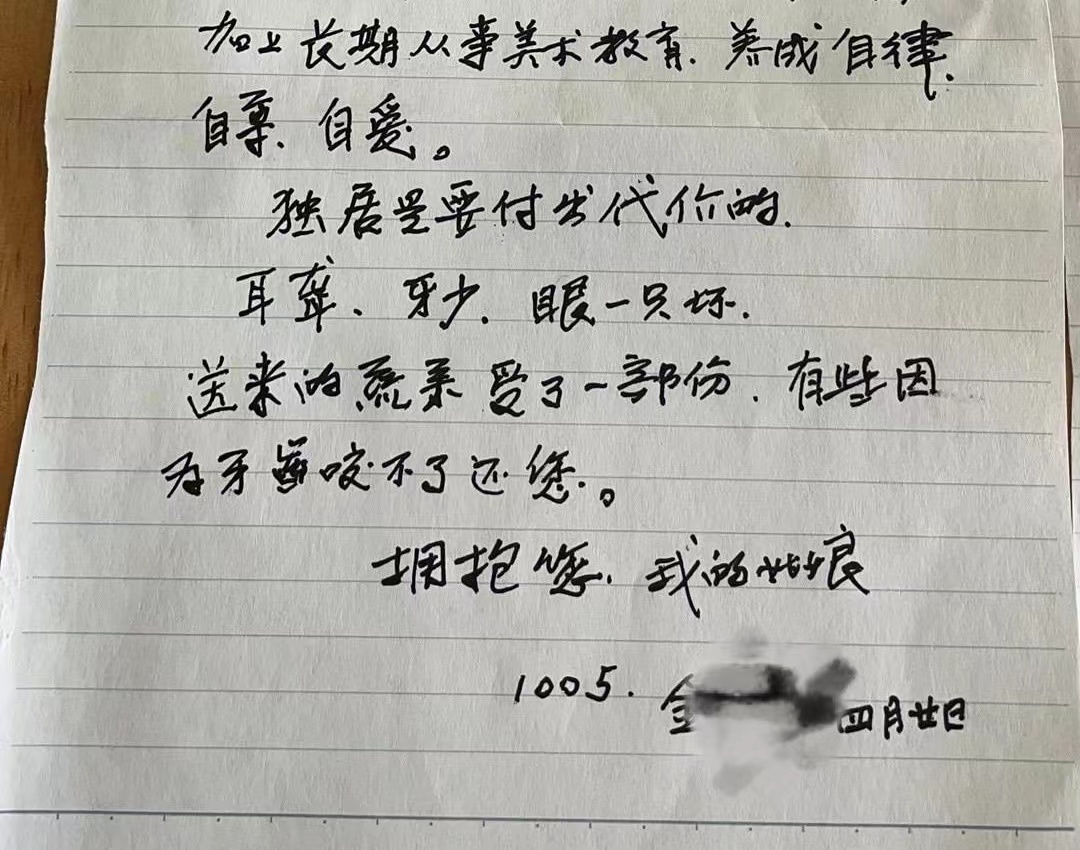 加上长期从事美术教育、养成自律、
自尊、自爱。
独居是要付出代价的、
耳聋、牙少、眼一只坏、
送来的蔬菜受了一部份、有些因
为牙咬不了还您。
拥抱您、我的姑娘
1005.金
四月廿日